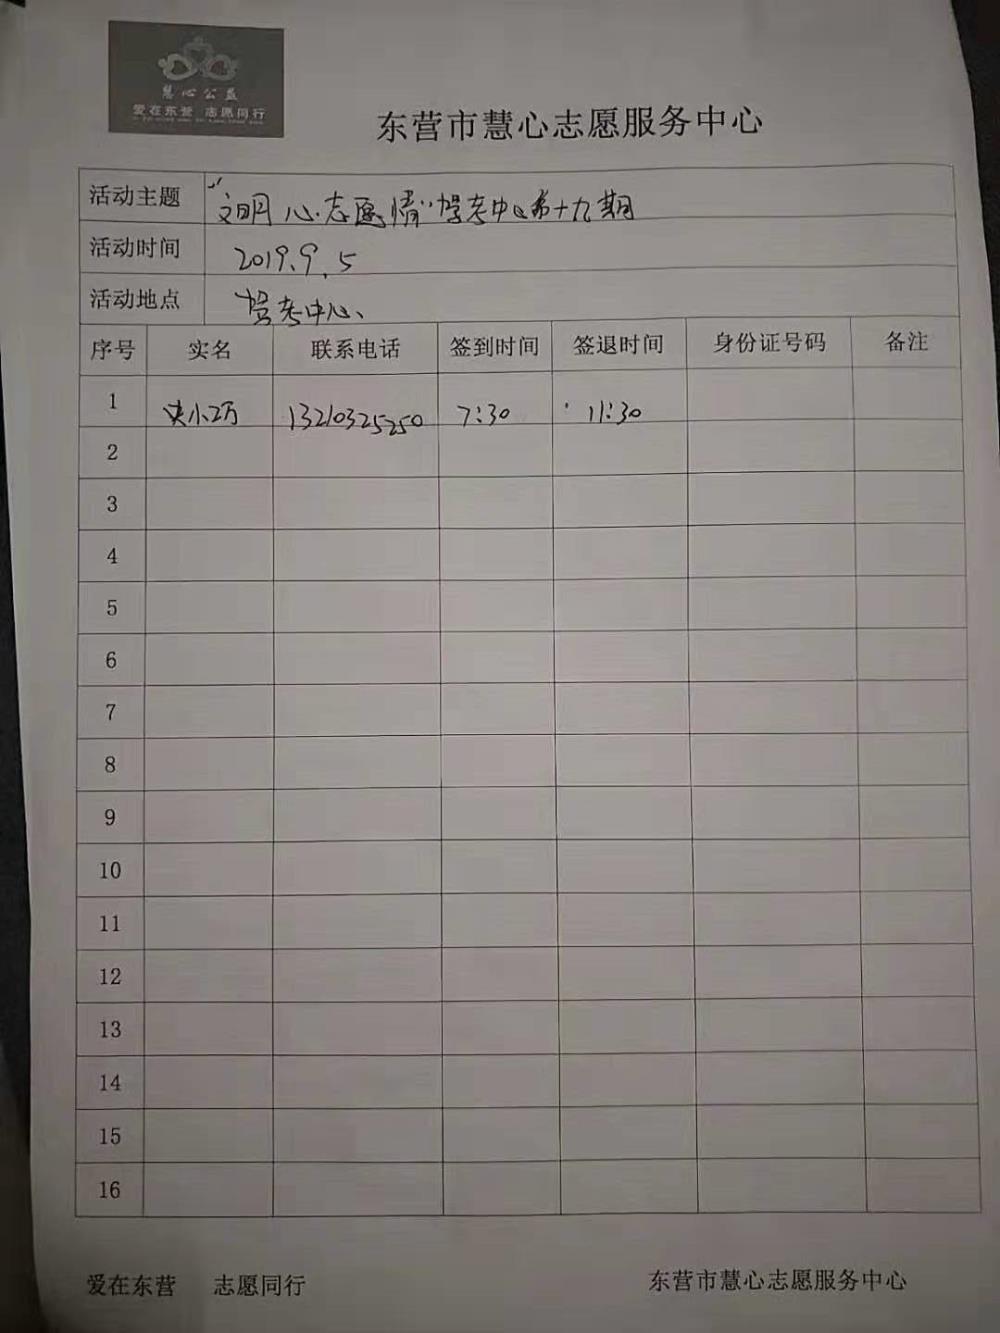 慧心公益
爱在东营 志愿同行
东营市慧心志愿服务中心
活动主题 "文明心.志愿情"驾考中心第十九期
活动时间 2019.9.5
活动地点 驾考中心、
序号 实名 联系电话 签到时间 签退时间 身份证号码 备注
1 小 13210325250 7:30 11:30
2
3
4
5
6
7
8
9
10
11
12
13
14
15
16
爱在东营 志愿同行 东营市慧心志愿服务中心